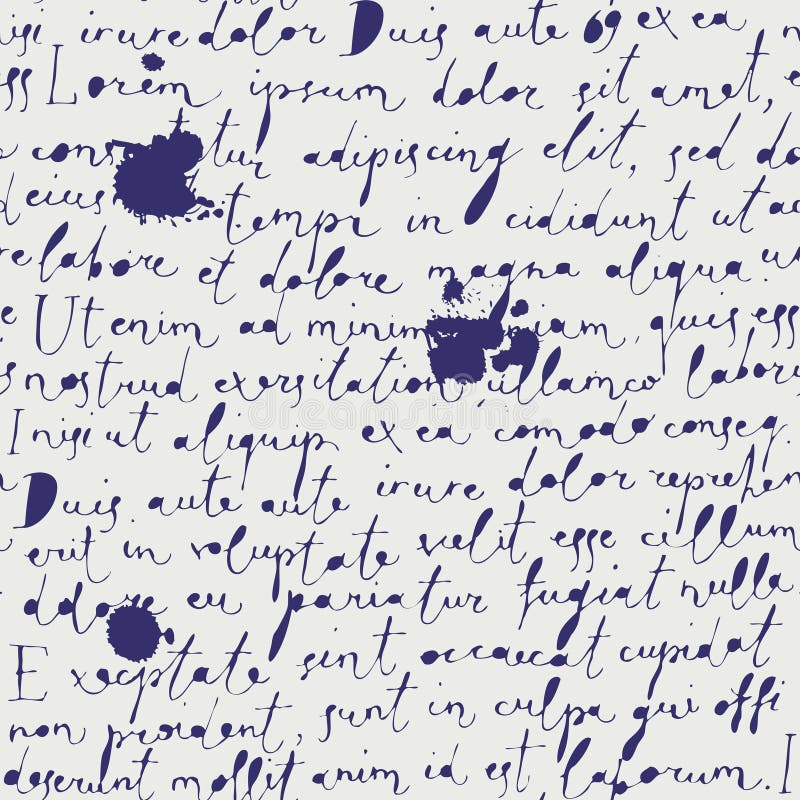 nisi irure dolor Duis aute ex ea
Lorem ipsum dolor sit amet,
adipiscing elit, sed do
eius tempr in cididunt ut
labore et dolore magna aliqua
Ut enim ad minim niam, quis ess
nostrud exersitation ullamco labori
I nisi ut aliquip ex ea comodo conseq.
Duis aute aute irure dolor reprehen
erit in voluptate vselit esse cillum
dolore eu pariatur fugiat nulla
Excptate sint occaecat cupidat
non proident, sunt in culpa qui offi
deserunt mollit anim id est, laborum. I